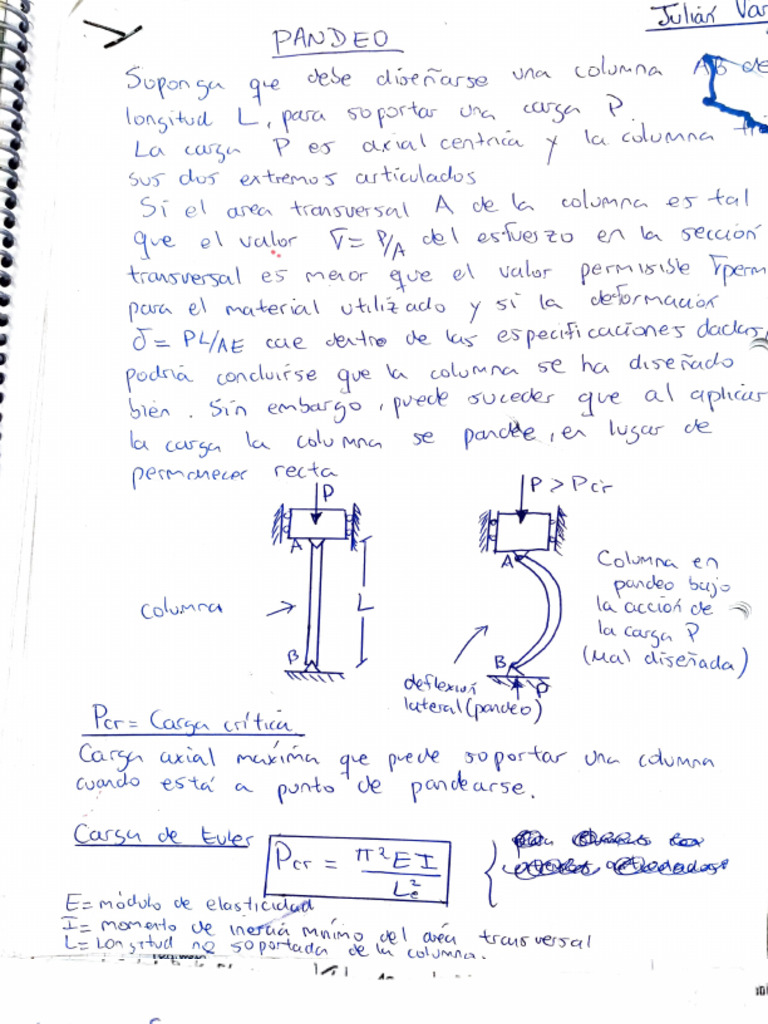 Julián Var
PANDEO
Suponga que debe diseñarse una columna AB de
longitud L, para soportar una carga P.
La carga P es axial centrica y la columna
sus dos extremos articulados
Si el area transversal A de la columna es tal
que el valor σ = P/A del esfuerzo en la sección
transversal es menor que el valor permisible σperm
para el material utilizado y si la deformación
δ = PL/AE cae dentro de las especificaciones dadas,
podría concluirse que la columna se ha diseñado
bien. Sin embargo, puede suceder que al aplicar
la carga la columna se pandée, en lugar de
permanecer recta
P
P > Pcr
A
A
Columna en
pandeo bajo
la acción de
la carga P
(Mal diseñada)
columna
L
B
B
P
deflexión
lateral (pandeo)
Pcr = Carga crítica
Carga axial maxima que puede soportar una columna
cuando está a punto de pandearse.
Carga de Euler
Pcr = π²EI / Le²
E = módulo de elasticidad
I = momento de inercia mínimo del area transversal
L = Longitud no soportada de la columna.